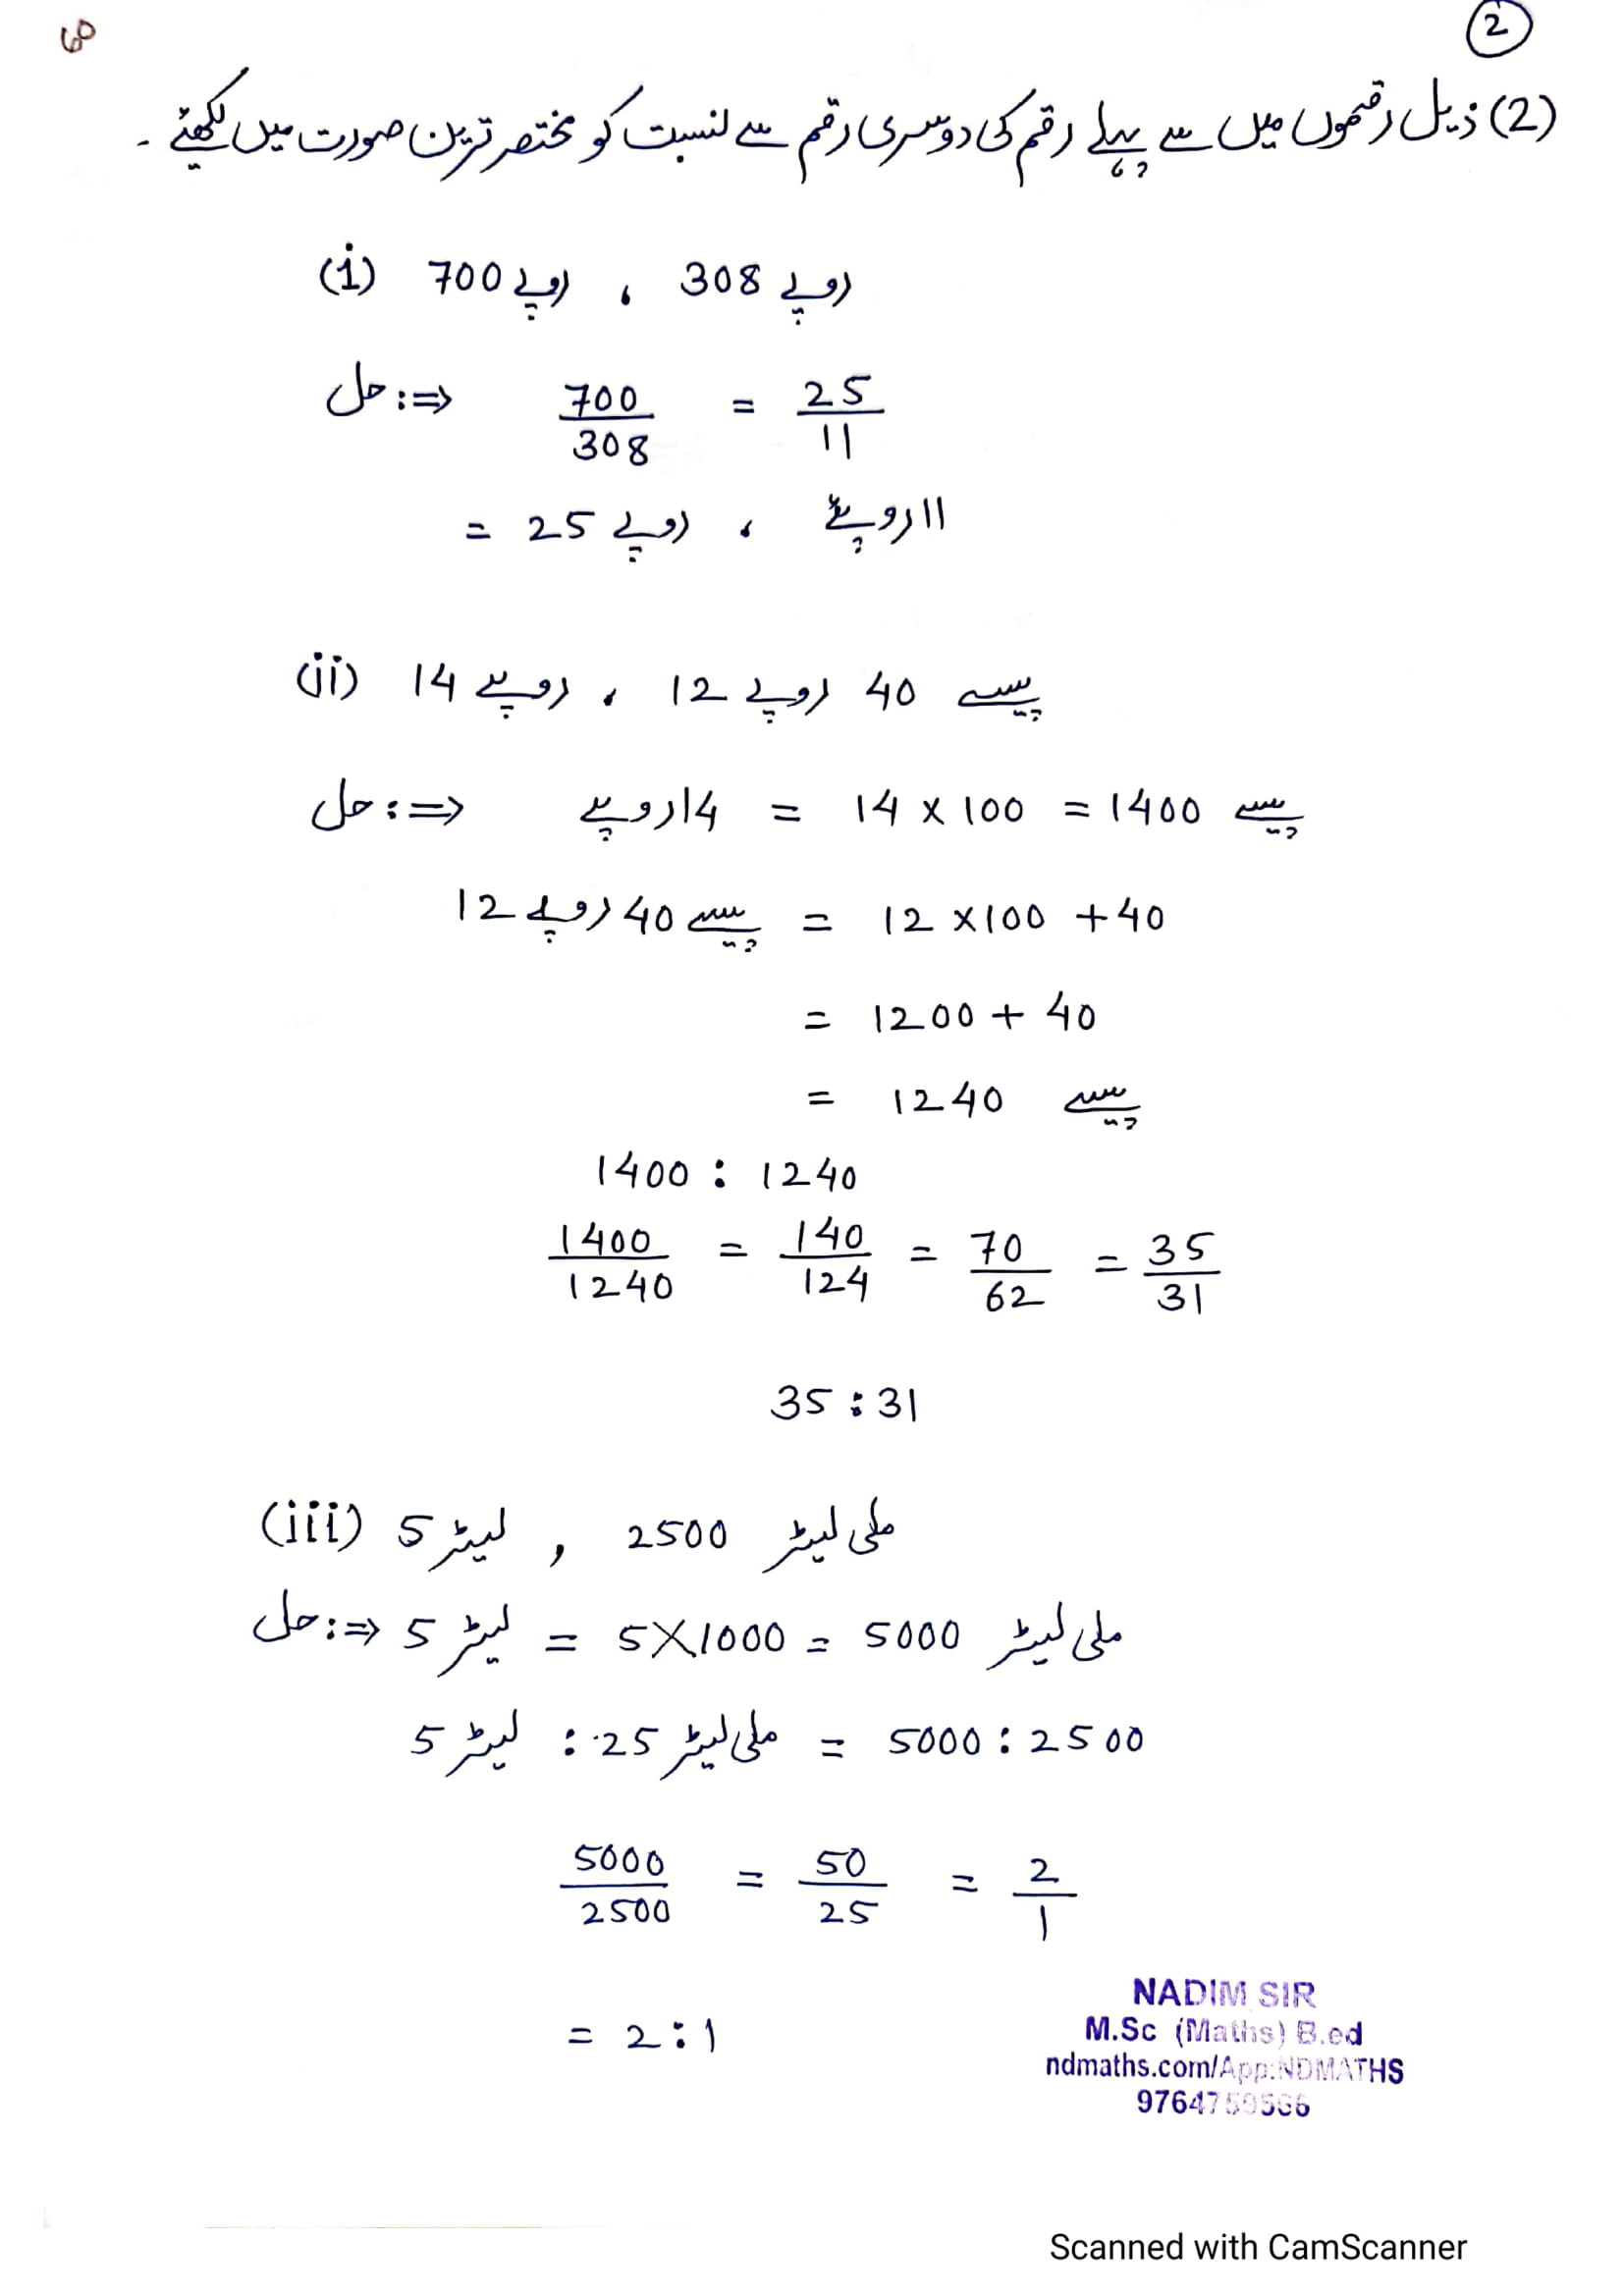 2
(2) ذیل رقموں میں سے پہلے رقم کی دوسری رقم سے نسبت کو مختصر ترین صورت میں لکھئے ۔
(i) 700 روپے ، 308 روپے
حل :⇒ 700/308 = 25/11
= 25 روپے ، 11 روپے
(ii) 14 روپے ، 12 روپے 40 پیسے
حل :⇒ 14 روپے = 14 × 100 = 1400 پیسے
12 روپے 40 پیسے = 12 ×100 + 40
= 1200 + 40
= 1240 پیسے
1400 : 1240
1400/1240 = 140/124 = 70/62 = 35/31
35 : 31
(iii) 5 لیٹر , 2500 ملی لیٹر
حل :⇒ 5 لیٹر = 5×1000 = 5000 ملی لیٹر
5 لیٹر : 25 ملی لیٹر = 5000 : 2500
5000/2500 = 50/25 = 2/1
= 2 : 1
NADIM SIR
M.Sc (Maths) B.ed
ndmaths.com/App:NDMATHS
Scanned with CamScanner